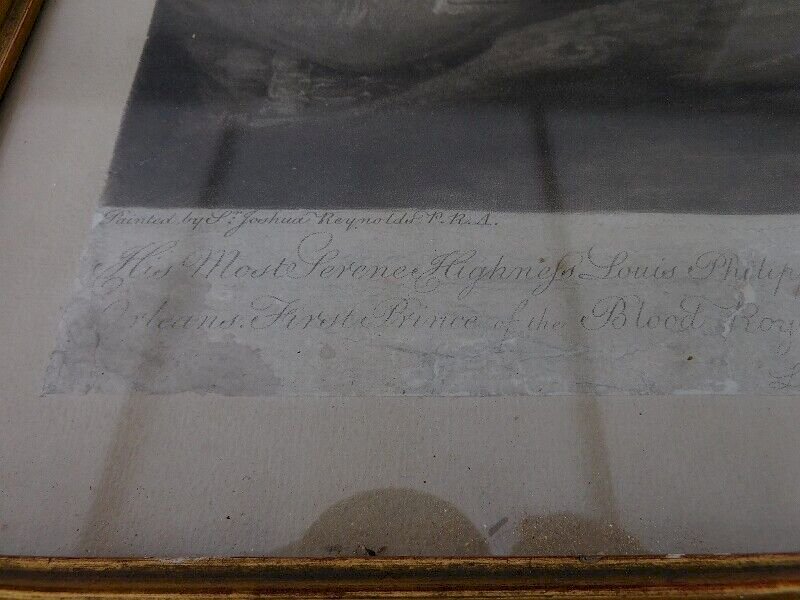 Painted by Sr. Joshua Reynolds P.R.A.
His Most Serene Highness Louis Philip
Orleans. First Prince of the Blood Roy
L